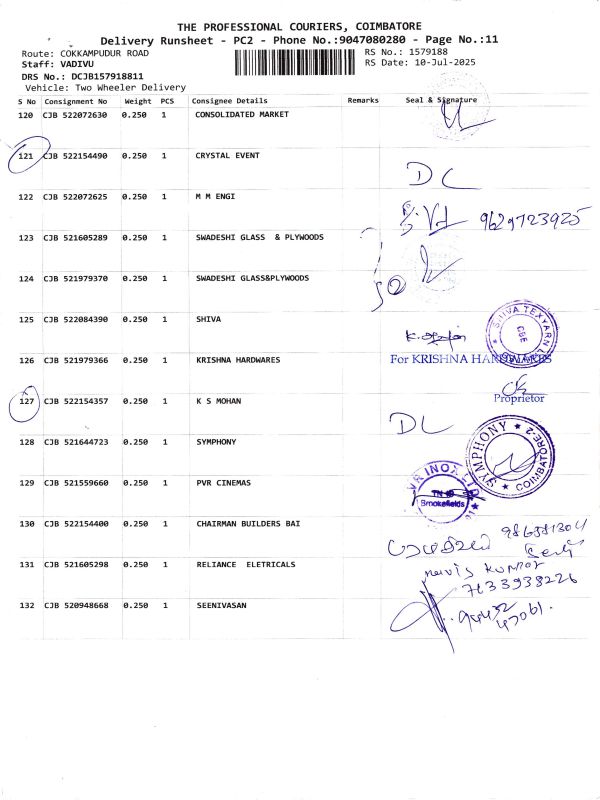 THE PROFESSIONAL COURIERS, COIMBATORE
Delivery Runsheet - PC2 - Phone No.:9047080280 - Page No.:11
Route: COKKAMPUDUR ROAD
RS No.: 1579188
Staff: VADIVU
RS Date: 10-Jul-2025
DRS No.: DCJB157918811
Vehicle: Two Wheeler Delivery
S No Consignment No Weight PCS Consignee Details Remarks Seal & Signature
120 CJB 522072630 0.250 1 CONSOLIDATED MARKET
121 CJB 522154490 0.250 1 CRYSTAL EVENT
DL
122 CJB 522072625 0.250 1 M M ENGI
9629723925
123 CJB 521605289 0.250 1 SWADESHI GLASS & PLYWOODS
124 CJB 521979370 0.250 1 SWADESHI GLASS&PLYWOODS
2
125 CJB 522084390 0.250 1 SHIVA
SHIVA TEXYARN
CBE
126 CJB 521979366 0.250 1 KRISHNA HARDWARES
For KRISHNA HARDWARES
Proprietor
127 CJB 522154357 0.250 1 K S MOHAN
DL
128 CJB 521644723 0.250 1 SYMPHONY
SYMPHONY
COIMBATORE-2
129 CJB 521559660 0.250 1 PVR CINEMAS
Brookefields
130 CJB 522154400 0.250 1 CHAIRMAN BUILDERS BAI
131 CJB 521605298 0.250 1 RELIANCE ELETRICALS
kumar
132 CJB 520948668 0.250 1 SEENIVASAN